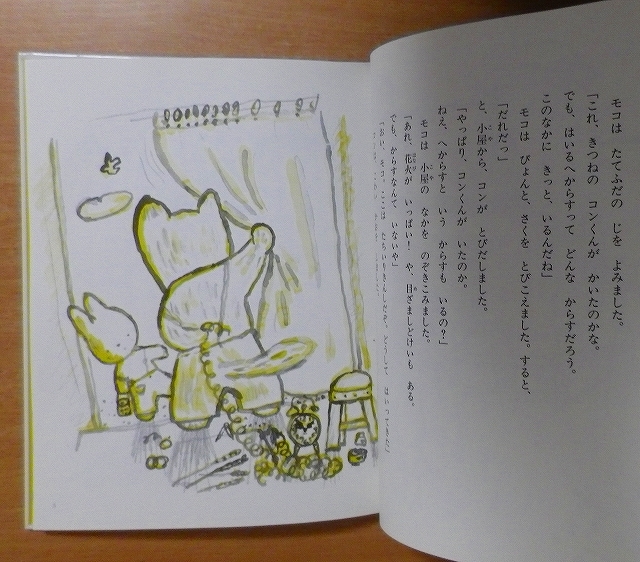 モコは たてふだの じを よみました。
「これ、きつねの コンくんが かいたのかな。
でも、はいるへからすって どんな からすだろう。
このなかに きっと、いるんだね」
モコは ぴょんと、さくを とびこえました。すると、
「だれだっ」
と、小屋から、コンが とびだしました。
「やっぱり、コンくんが いたのか。
ねえ、へからすと いう からすも いるの?」
モコは 小屋の なかを のぞきこみました。
「あれ、花火が いっぱい! や、目ざましどけいも ある。
でも、からすなんて いないや」